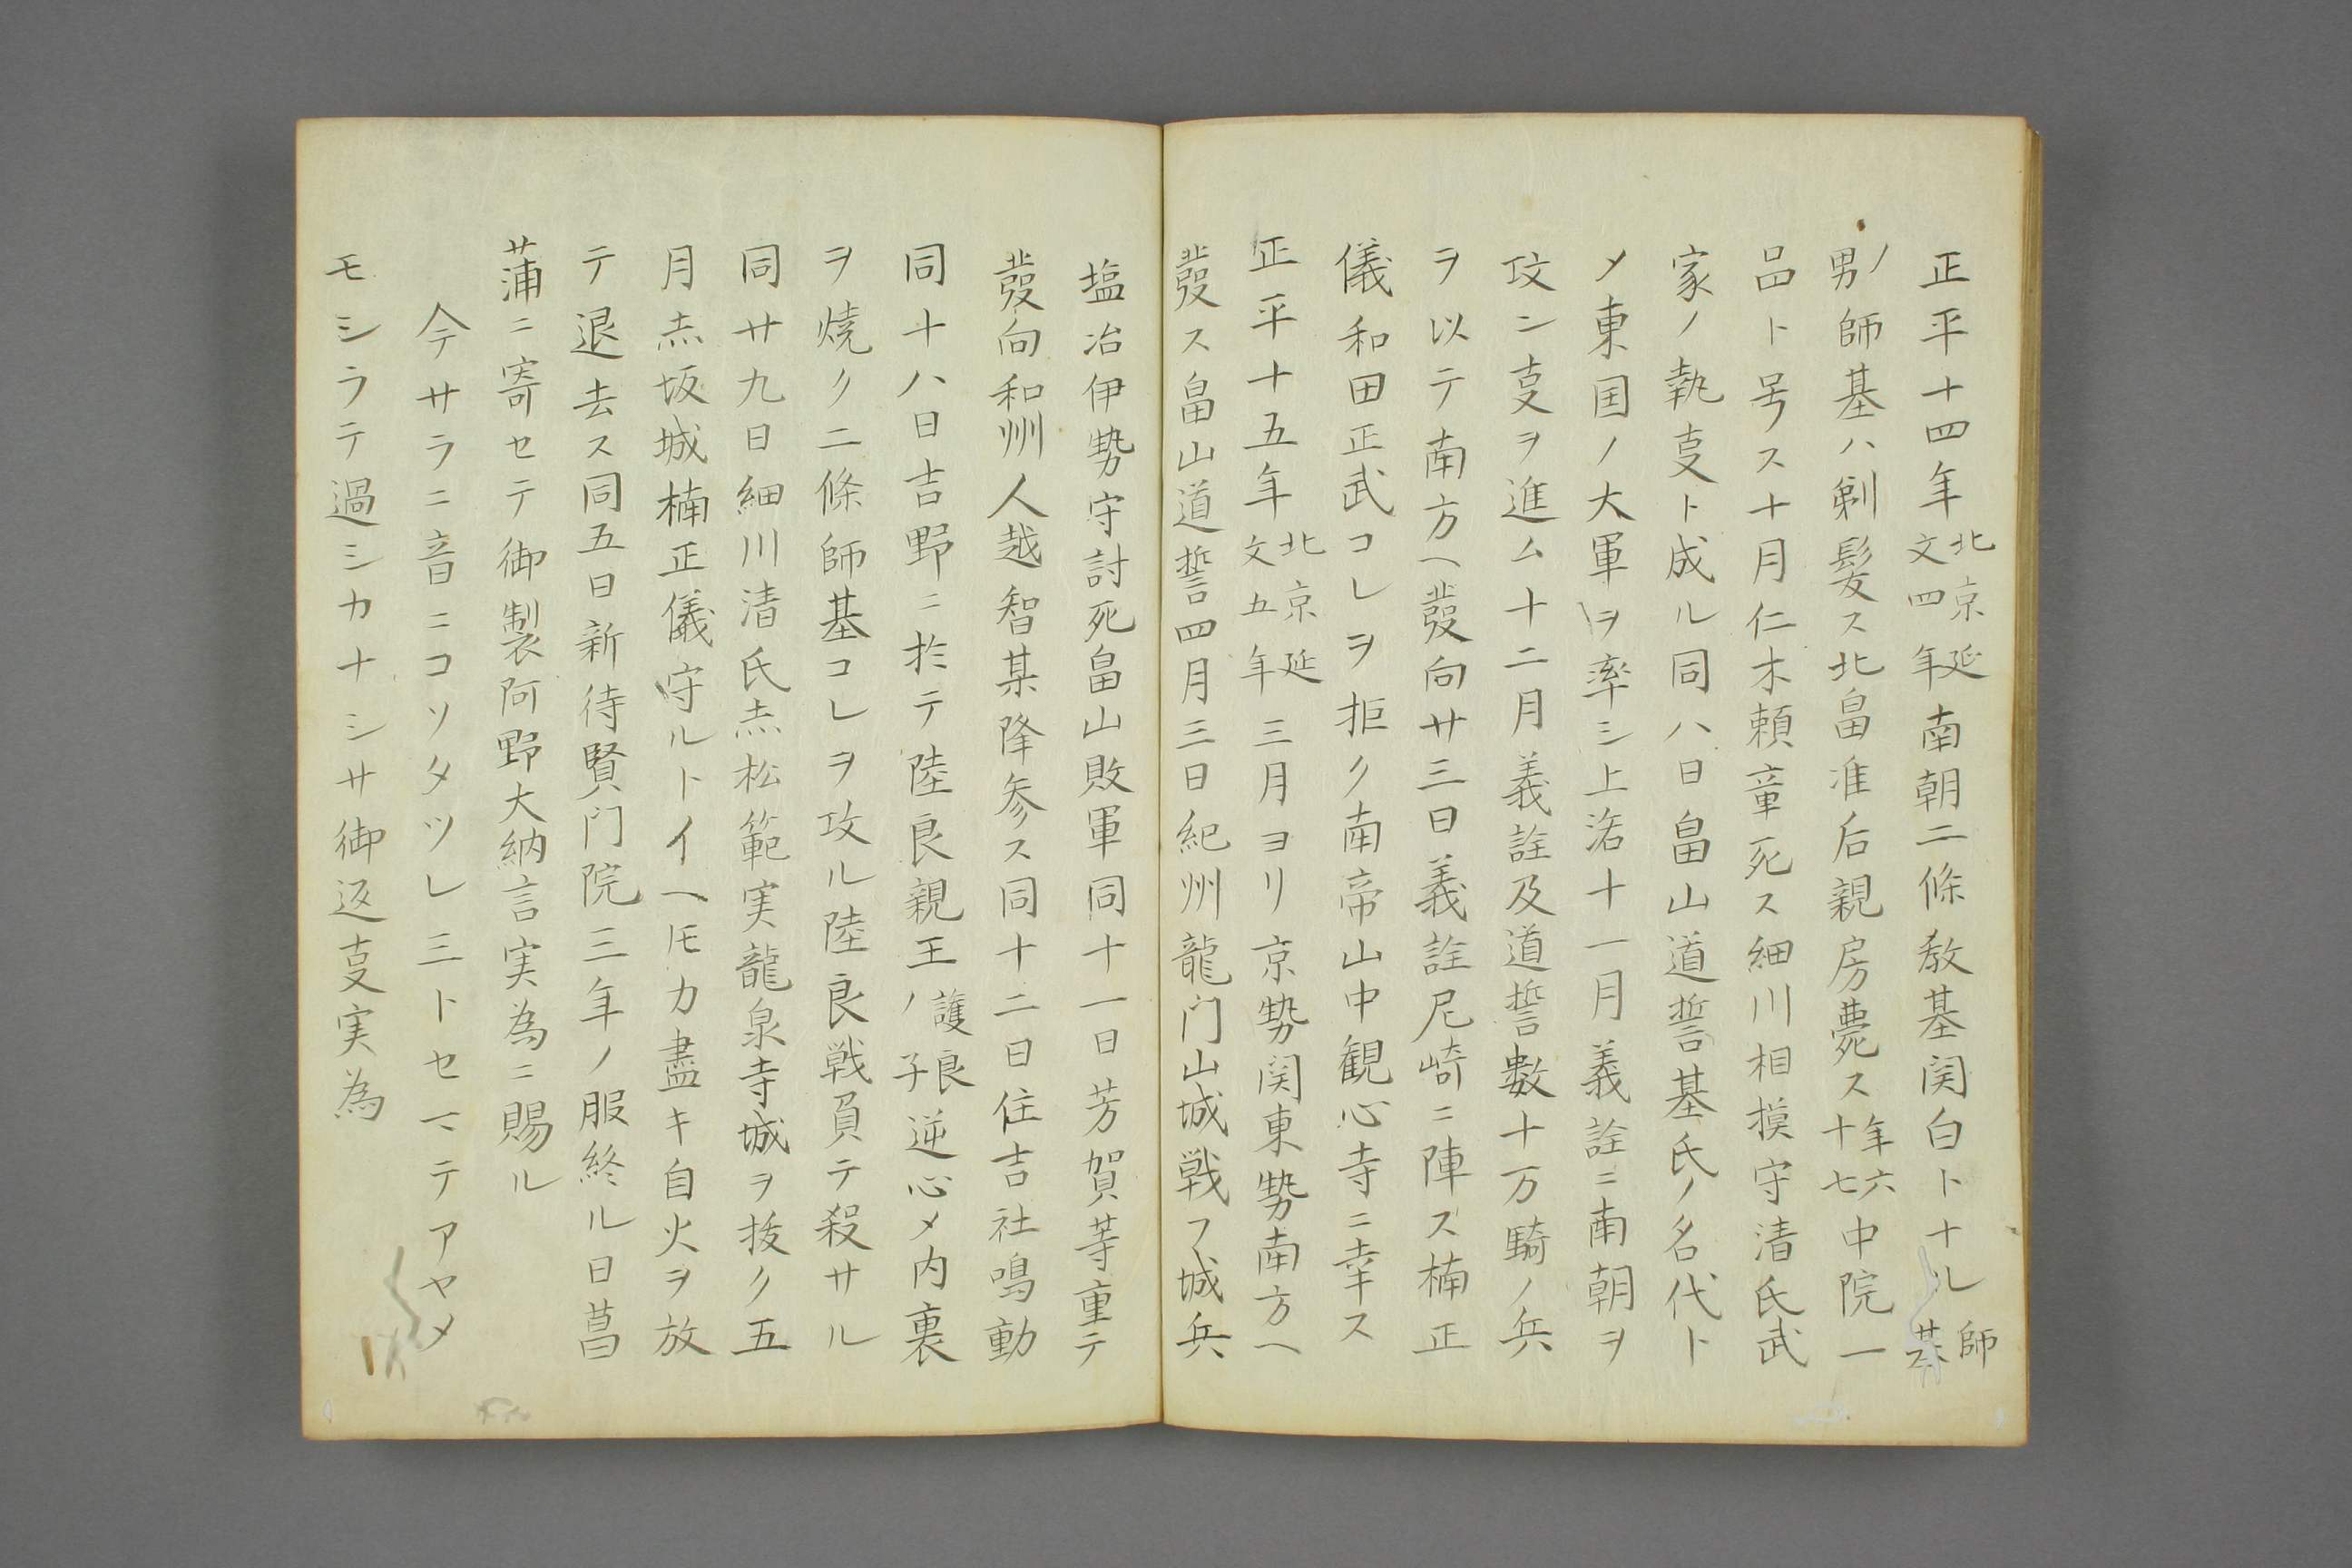 正平十四年北京延文四年南朝二條教基関白トナル師基
ノ男師基ハ剃髪ス北畠准后親房薨ス年六十七中院一
品ト号ス十月仁木頼章死ス細川相摸守清氏武
家ノ執㕝ト成ル同八日畠山道誓基氏ノ名代ト
メ東国ノ大軍ヲ率シ上洛十一月義詮ニ南朝ヲ
攻ン㕝ヲ進ム十二月義詮及道誓數十万騎ノ兵
ヲ以テ南方ヘ發向廿三日義詮尼崎ニ陣ス楠正
儀和田正武コレヲ拒ク南帝山中観心寺ニ幸ス
正平十五年北京延文五年三月ヨリ京勢関東勢南方ヘ
發ス畠山道誓四月三日紀州龍门山城戦フ城兵
塩冶伊勢守討死畠山敗軍同十一日芳賀䓁重テ
發向和州人越智某降参ス同十二日住吉社鳴動
同十八日吉野ニ於テ陸良親王護良ノ子逆心メ内裏
ヲ焼ク二條師基コレヲ攻ル陸良戦負テ殺サル
同廿九日細川清氏赤松範実龍泉寺城ヲ抜ク五
月赤坂城楠正儀守ルトイヘ𪜈力盡キ自火ヲ放
テ退去ス同五日新待賢门院三年ノ服終ル日菖
蒲ニ寄セテ御製阿野大納言実為ニ賜ル
今サラニ音ニコソタツレ三トセマテアヤメ
モシラテ過シカナシサ御返㕝実為